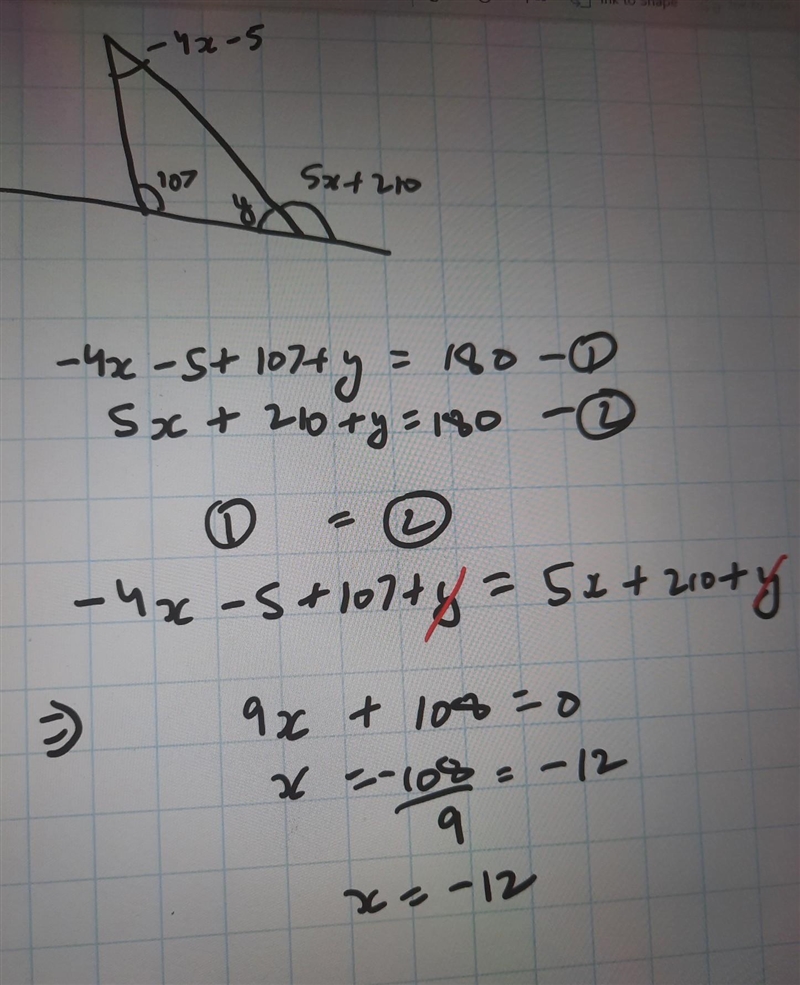 Ink to shape
-4x-5
107
y
5x+210
-4x-5+107+y = 180 -①
5x + 210+y=180 -②
① = ②
-4x-5+107+y = 5x+210+y
⇒ 9x + 108 = 0
x = -108/9 = -12
x = -12